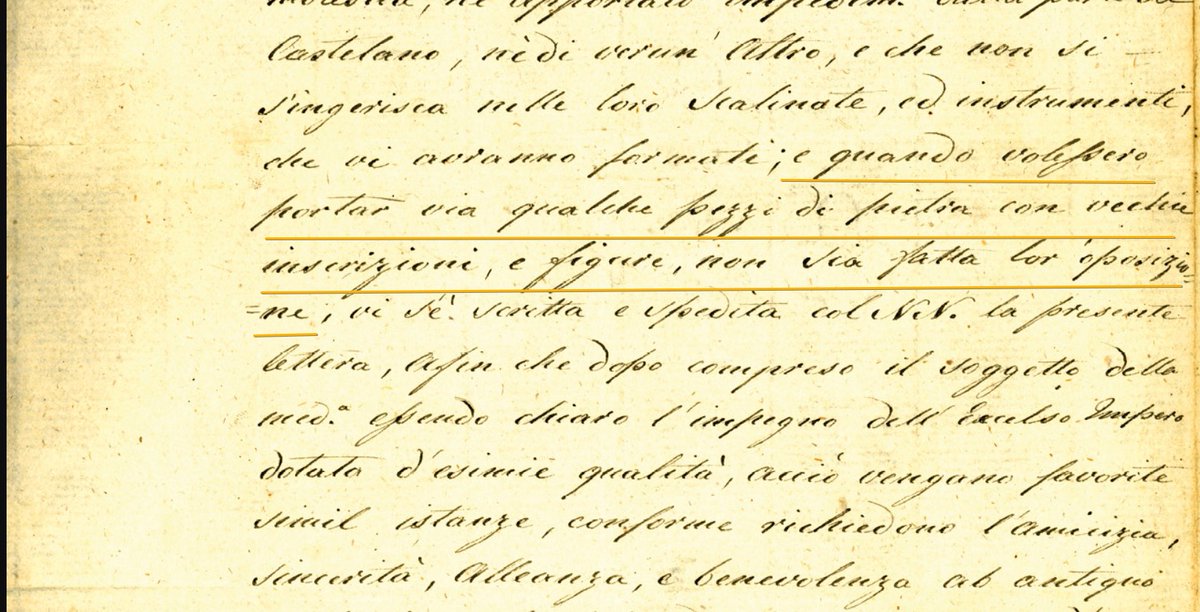 molestia, nè apportato impedim. dalla parte del
Castelano, nè di verun' Altro, e che non si
s'ingerisca nelle loro Scalinate, ed instrumenti,
che vi avranno formati; e quando volessero
portar via qualche pezzi di pietra con vechie
inscrizioni, e figure, non sia fatta lor' oposizio=
=ne, vi s'è scritta e spedita col N.N. la presente
lettera, Afin che dopo compreso il soggetto della
med.ª essendo chiaro l'impegno dell' Excelso Impero
dotato d'esimie qualità, acciò vengano favorite
simil istanze, conforme richiedono l'amicizia,
sincerità, Alleanza, e benevolenza ab antiquo